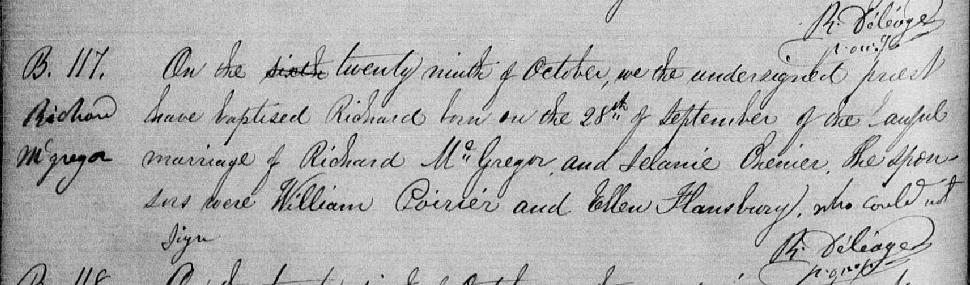 R. Déléage
B. 117. On the sixth twenty ninth of October, we the undersigned priest
Richard have baptised Richard born on the 28th of September of the Lawful
McGregor marriage of Richard McGregor, and Selanie Chenier. The spon-
sors were William Poirier and Ellen Hansbury, who could not
sign
R. Déléage
B. 118.